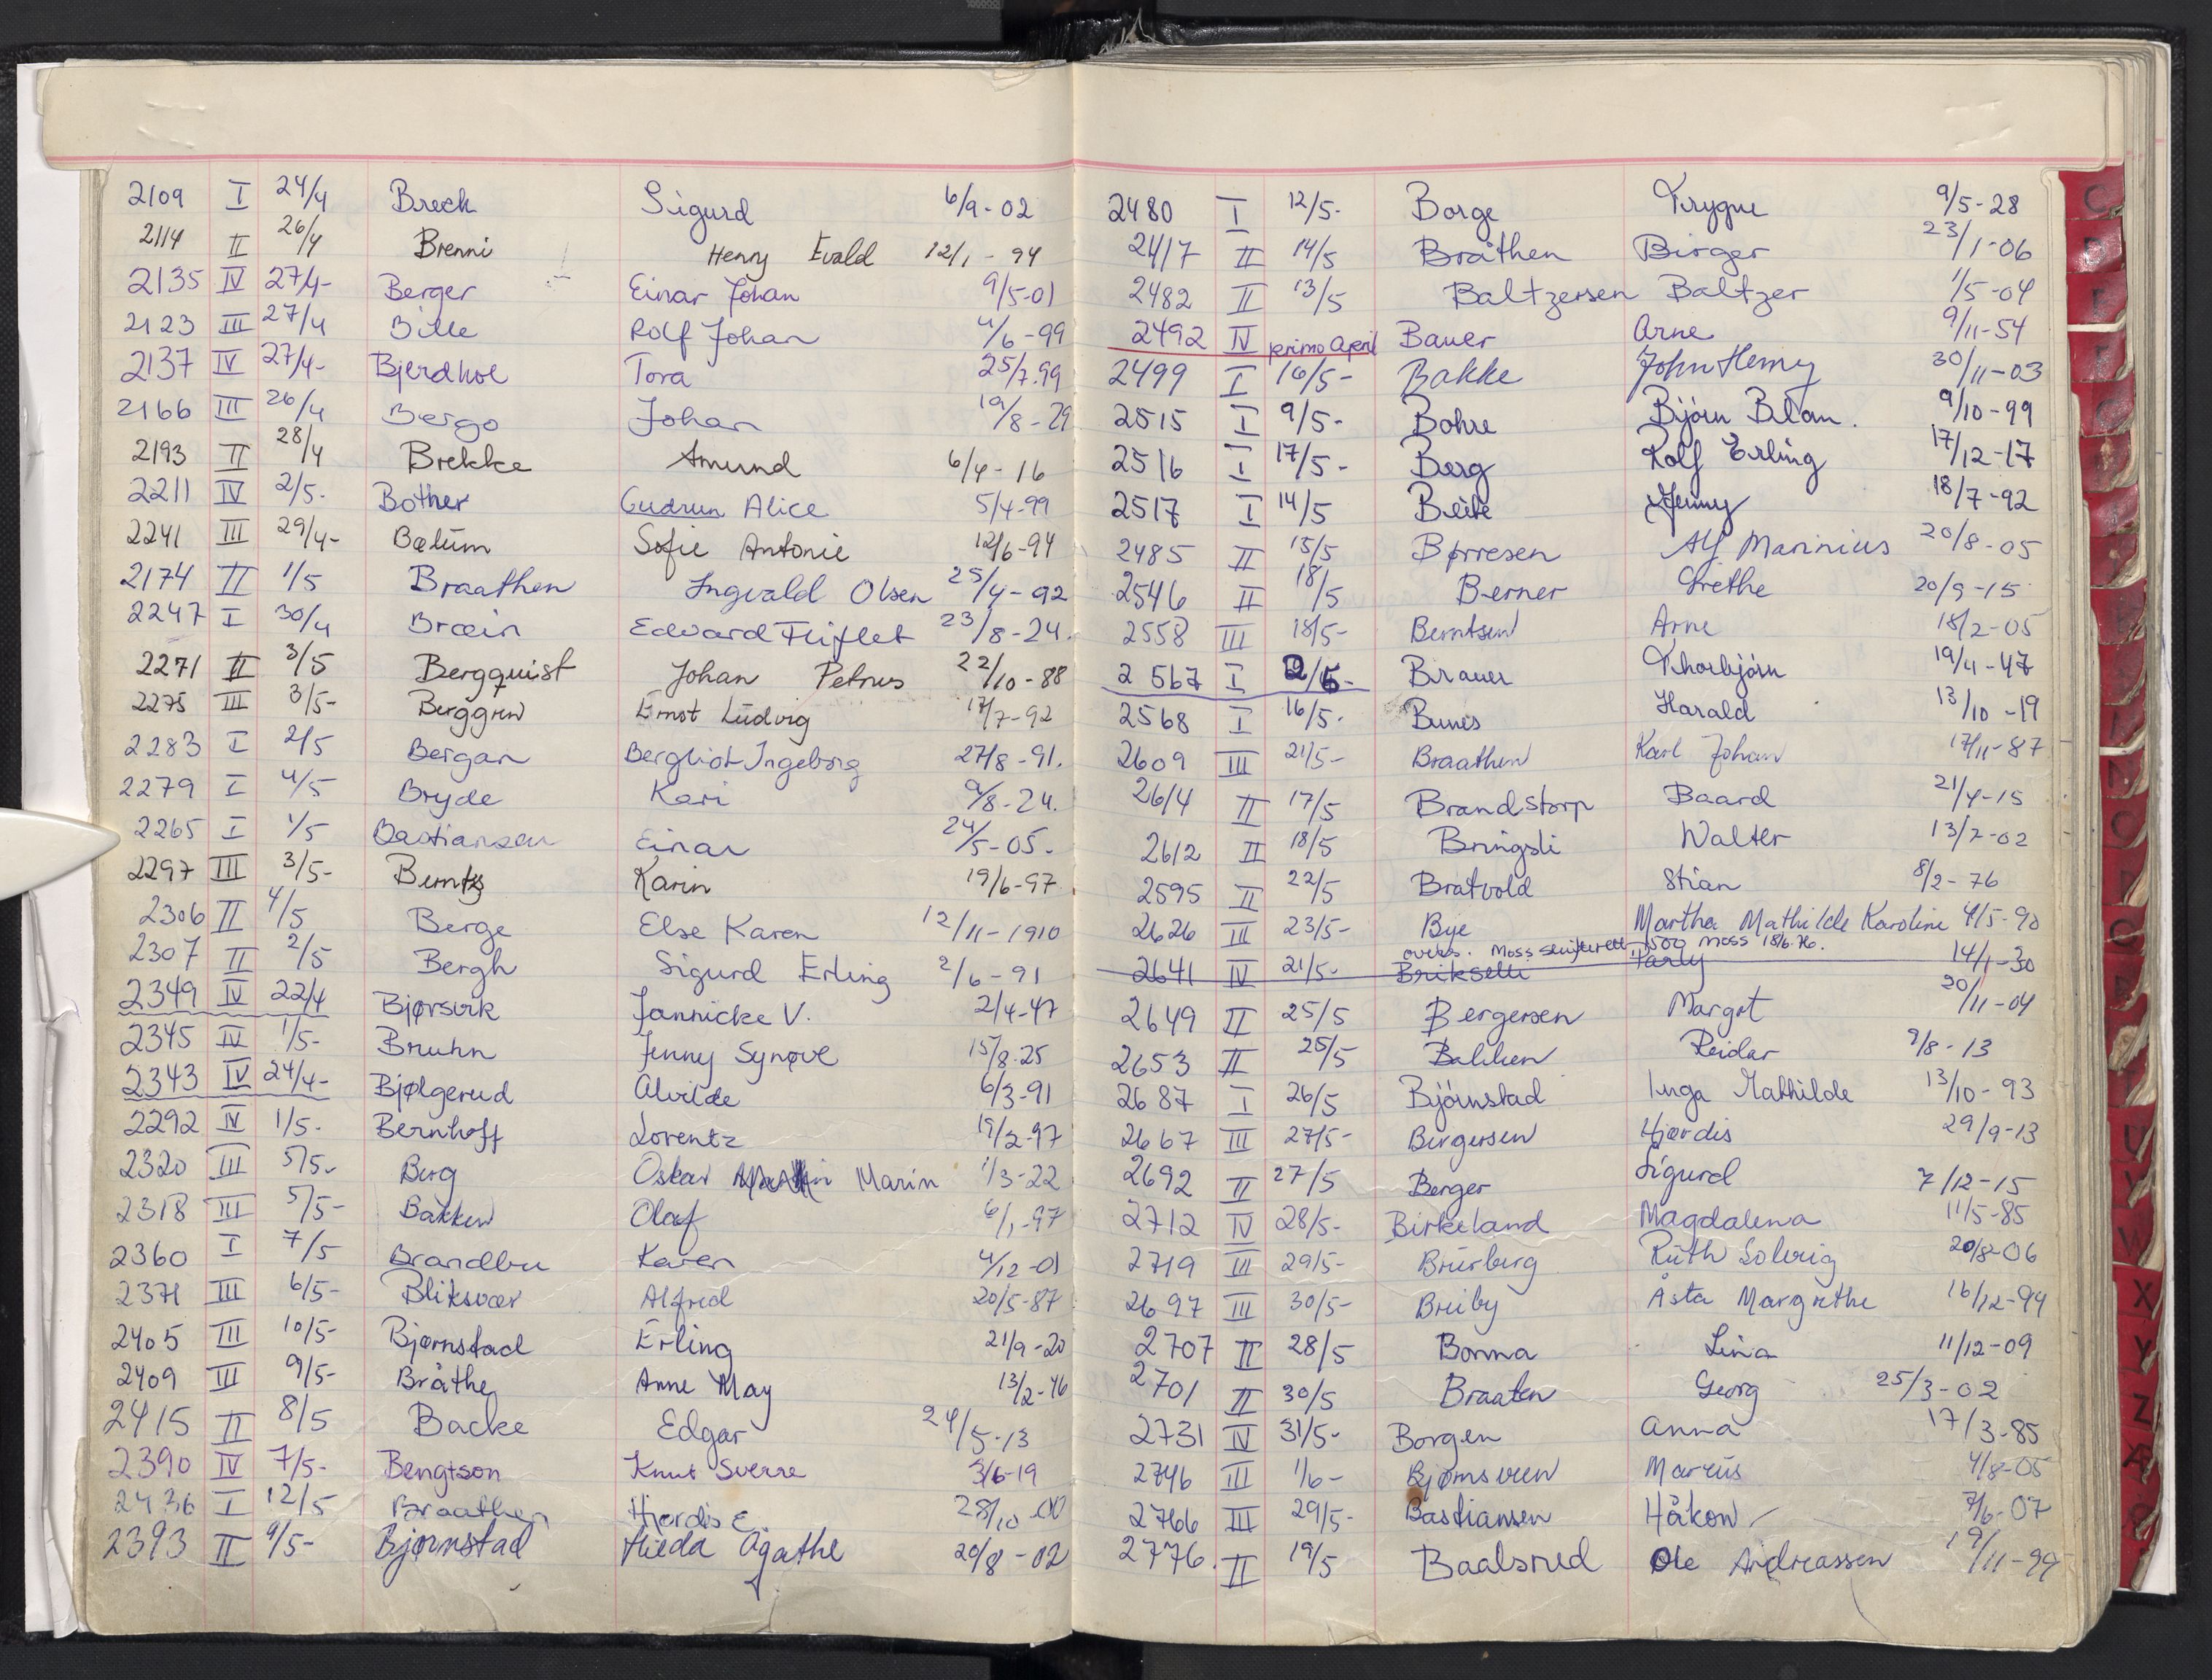 2109 I 24/4 Breck Sigurd 6/9-02
2114 II 26/4 Brenni Henry Evald 12/1-94
2135 IV 27/4- Berger Einar Johan 9/5-01
2123 III 27/4 Bille Rolf Johan 4/6-99
2137 IV 27/4- Bjerdhol Tora 25/7-99
2166 III 26/4 Bergo Johan 19/8-29
2193 II 28/4 Brekke Amund 6/4-16
2211 IV 2/5- Bother Gudrun Alice 5/4-99
2241 III 29/4- Bælum Sofie Antonie 12/6-94
2174 II 1/5 Braathen Ingvald Olsen 25/4-92
2247 I 30/4 Bræin Edvard Fliflet 23/8-24.
2271 II 3/5 Bergquist Johan Petrus 22/10-88
2275 III 3/5- Berggren Ernst Ludvig 17/7-92
2283 I 2/5 Bergan Bergliot Ingeborg 27/8-91.
2279 I 4/5 Bryde Kari 9/8-24.
2265 I 1/5 Bastiansen Einar 24/5-05.
2297 III 3/5- Berntzs Karin 19/6-97
2306 II 4/5 Berge Else Karen 12/11-1910
2307 II 2/5 Bergh Sigurd Erling 2/6-91
2349 IV 22/4 Bjørsvik Jannicke V. 2/4-47
2345 IV 1/5- Bruhn Jenny Synøve 15/8-25
2343 IV 24/4- Bjølgerud Alvilde 6/3-91
2292 IV 1/5- Bernhoff Lorentz 19/2-97
2320 III 5/5- Berg Oskar Marin 1/3-22
2318 III 5/5- Bakken Olaf 6/1-97
2360 I 7/5 Brandbu Karen 4/12-01
2371 III 6/5- Bliksvær Alfred 20/5-87
2405 III 10/5- Bjørnstad Erling 21/9-20
2409 III 9/5- Bråthe Anne May 13/2-46
2415 II 8/5 Backe Edgar 24/5-13
2390 IV 7/5- Bengtson Knut Sverre 3/6-19
2436 I 12/5 Braathen Hjørdis E. 28/10-00
2393 II 9/5- Bjørnstad Hilda Agathe 20/8-02
2480 I 12/5- Borge Trygve 9/5-28
2417 II 14/5 Bråthen Birger 23/1-06
2482 II 13/5 Baltzersen Baltzer 1/5-04
2492 IV primo april Bauer Arne 9/11-54
2499 I 16/5- Bakke John Henry 30/11-03
2515 I 9/5- Bohre Bjørn Blom. 9/10-99
2516 I 17/5- Berg Rolf Erling 17/12-17
2517 I 14/5 Beite Jenny 18/7-92
2485 II 15/5 Børresen Alf Marinius 20/8-05
2546 II 18/5 Berner Grethe 20/9-15
2558 III 18/5- Berntsen Arne 18/2-05
2567 I 2/5- Brauer Thorbjørn 19/4-47
2568 I 16/5- Bunes Harald 13/10-19
2609 III 21/5- Braathen Karl Johan 17/11-87
2614 II 17/5 Brandstorp Baard 21/4-15
2612 II 18/5 Bringsli Walter 13/7-02
2595 II 22/5 Bratvold Stian 8/2-76
2626 III 23/5- Bye Martha Mathilde Karoline 4/5-90
overs. Moss skifterett og Moss 18/6-76.
2641 IV 21/5- Brikselli Party 14/1-30
2649 II 25/5 Bergersen Margot 20/11-04
2653 II 25/5 Bakken Reidar 9/8-13
2687 I 26/5 Bjørnstad Inga Mathilde 13/10-93
2667 III 27/5- Birgersen Hjørdis 29/9-13
2692 II 27/5 Berger Sigurd 7/12-15
2712 IV 28/5- Birkeland Magdalena 11/5-85
2719 III 29/5- Brurberg Ruth Solveig 20/8-06
2697 III 30/5- Breiby Åsta Margrethe 16/12-94
2707 II 28/5 Bonna Lina 11/12-09
2701 II 30/5 Braaten Georg 25/3-02
2731 IV 31/5- Borgen Anna 17/3-85
2746 III 1/6- Bjørnsveen Marius 4/8-05
2766 III 29/5- Bastiansen Håkon 7/6-07
2776. II 19/5 Baalsrud Ole Andreassen 19/11-99
C
X
Y
Z